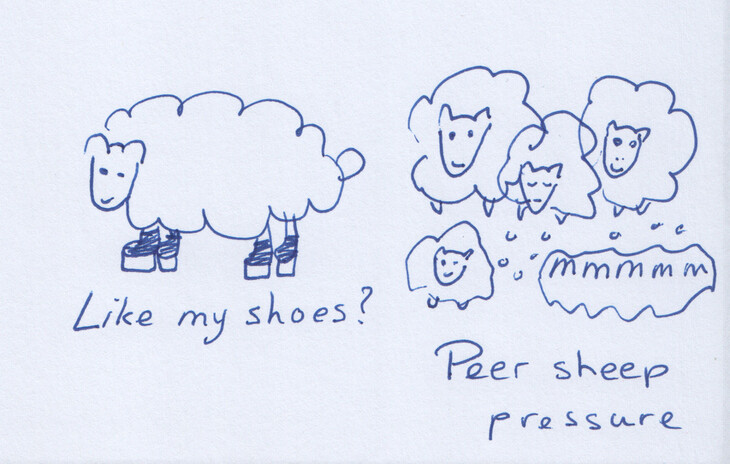 Like my shoes?
mmmmm
Peer sheep
pressure